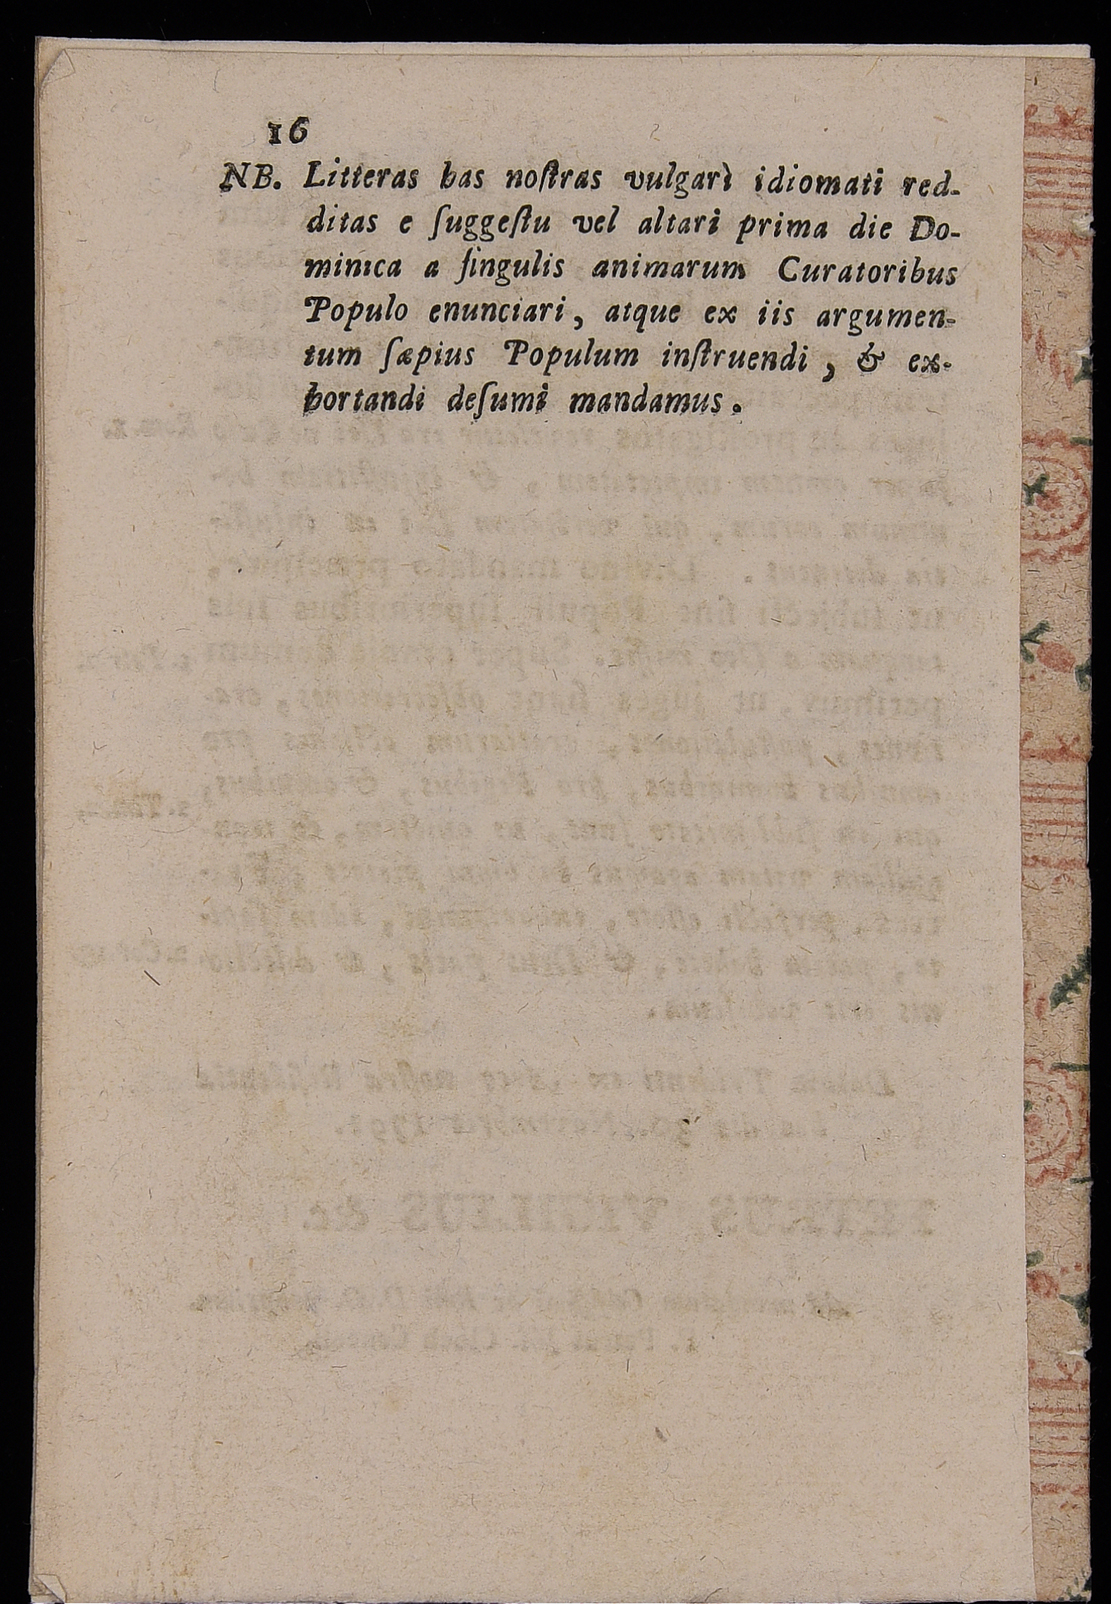 16
NB. Litteras has noſtras vulgarì idiomati red-
ditas e ſuggeſtu vel altari prima die Do-
minica a ſingulis animarum Curatoribus
Populo enunciari, atque ex iis argumen-
tum ſæpius Populum inſtruendi, & ex-
hortandi deſumi mandamus.